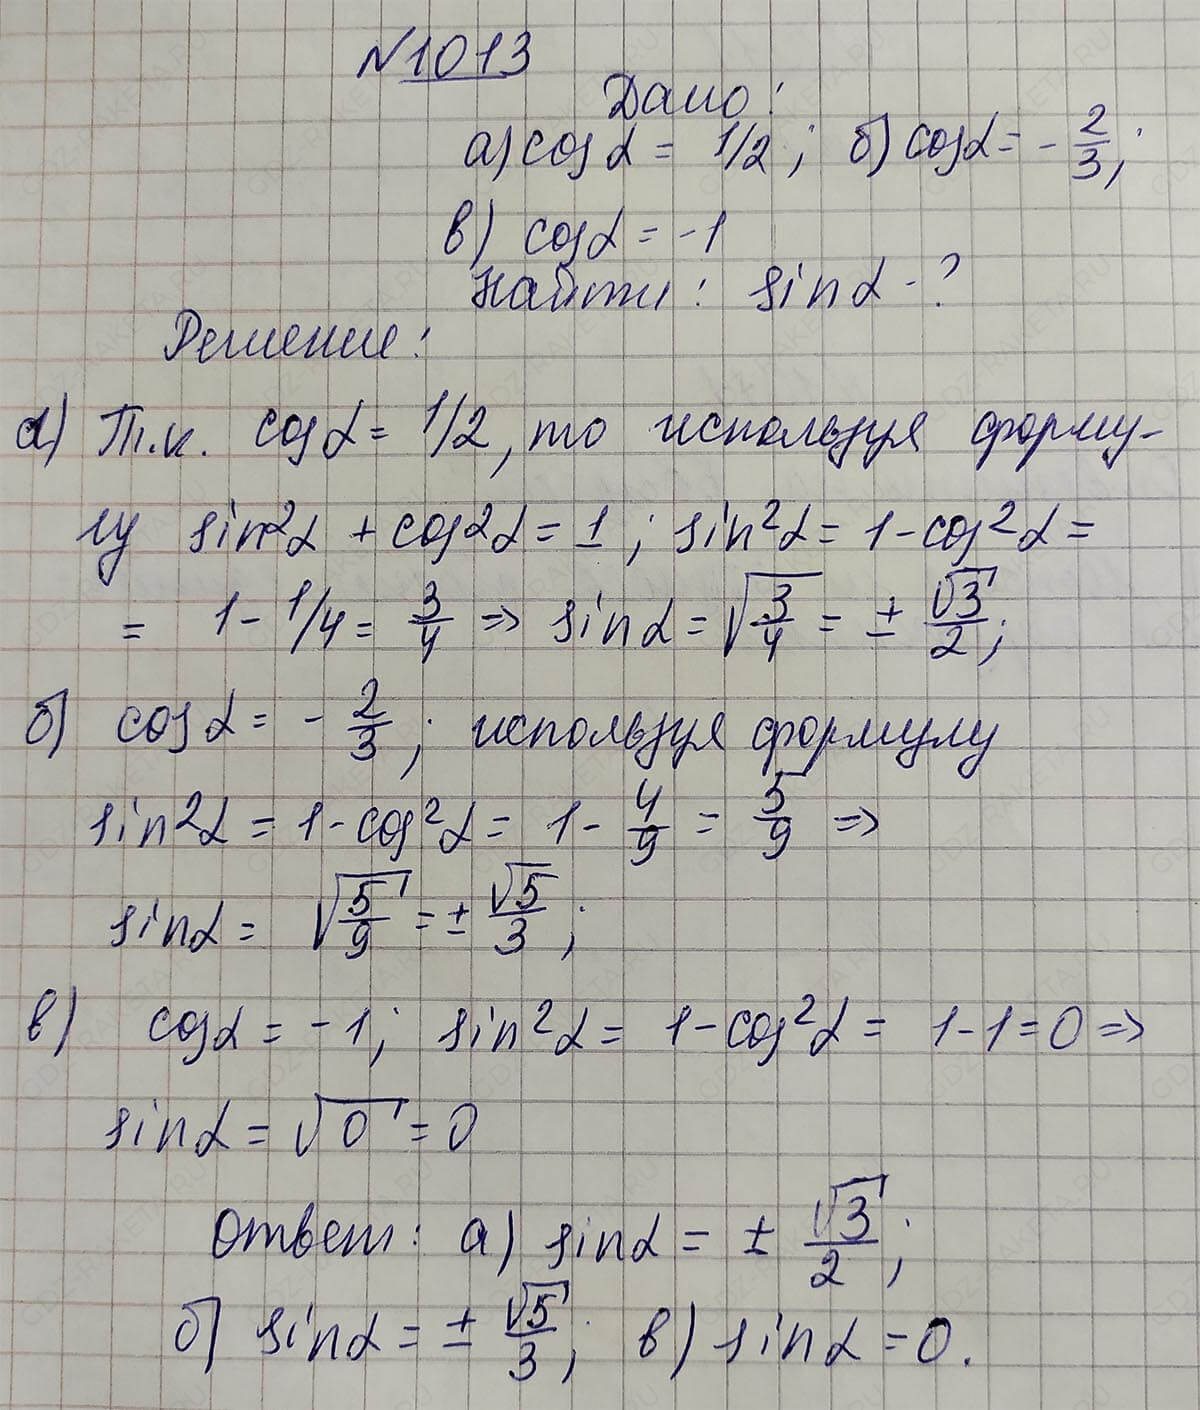 №1013
Дано:
а) cosα = 1/2; б) cosα = -2/3;
в) cosα = -1
Найти: sinα - ?
Решение:
а) Т.к. cosα = 1/2, то используя форму-
лу sin²α + cos²α = 1; sin²α = 1 - cos²α =
= 1 - 1/4 = 3/4 => sinα = √(3/4) = ± √3/2;
б) cosα = -2/3; используя формулу
sin²α = 1 - cos²α = 1 - 4/9 = 5/9 =>
sinα = √(5/9) = ± √5/3;
в) cosα = -1; sin²α = 1 - cos²α = 1 - 1 = 0 =>
sinα = √0 = 0
Ответ: а) sinα = ± √3/2;
б) sinα = ± √5/3; в) sinα = 0.